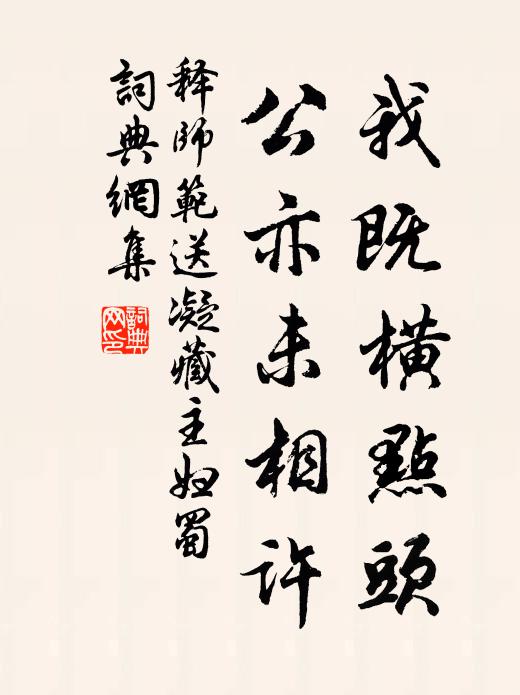 我既横點頭
公亦未相許
释師範送凝藏主妲蜀
詞典網集
詞典
网印